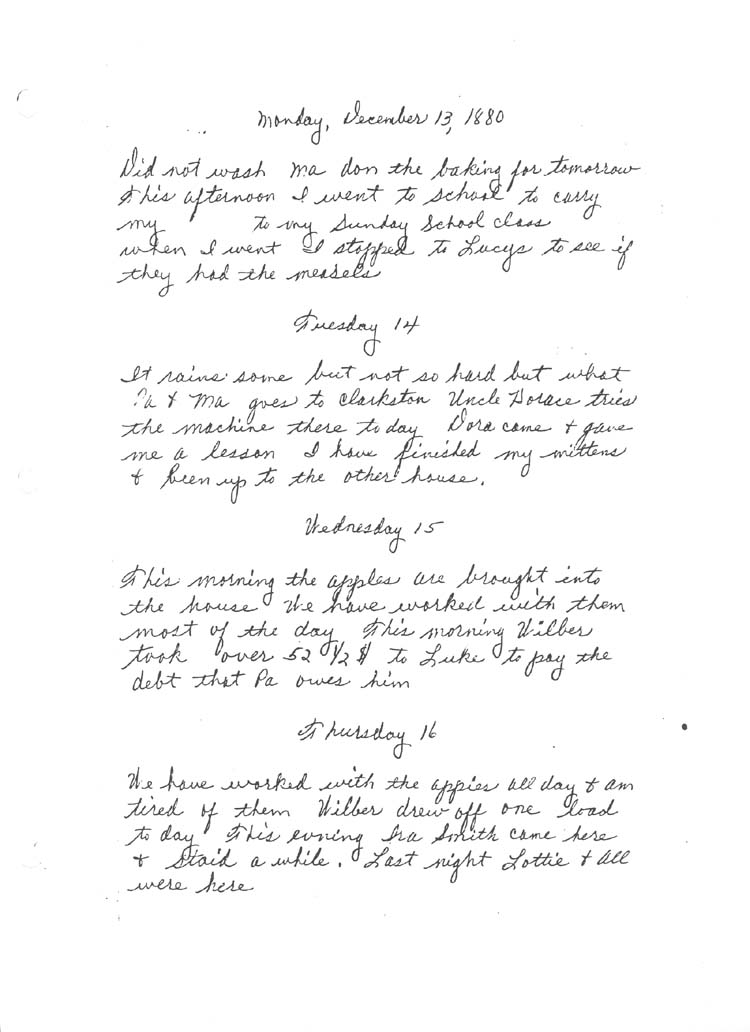 Monday, December 13, 1880
Did not wash Ma don the baking for tomorrow
This afternoon I went to school to carry
my to my Sunday School class
when I went I stopped to Lucys to see if
they had the measels
Tuesday 14
It rains some but not so hard but what
Pa & Ma goes to Clarkston Uncle Horace tries
the machine there to day Dora came & gave
me a lesson I have finished my mittens
& been up to the other house.
Wednesday 15
This morning the apples are brought into
the house We have worked with them
most of the day This morning Wilber
took over 52 1/2 $ to Luke to pay the
debt that Pa owes him
Thursday 16
We have worked with the appies all day & am
tired of them Wilber drew off one load
to day This evning Ira Smith came here
& Staid a while. Last night Lottie & all
were here